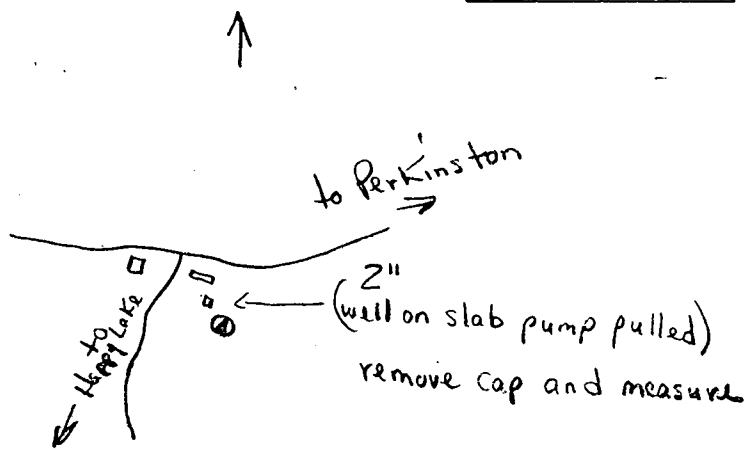 to Perkinston
to
Happy Lake
2"
(well on slab pump pulled)
remove cap and measure